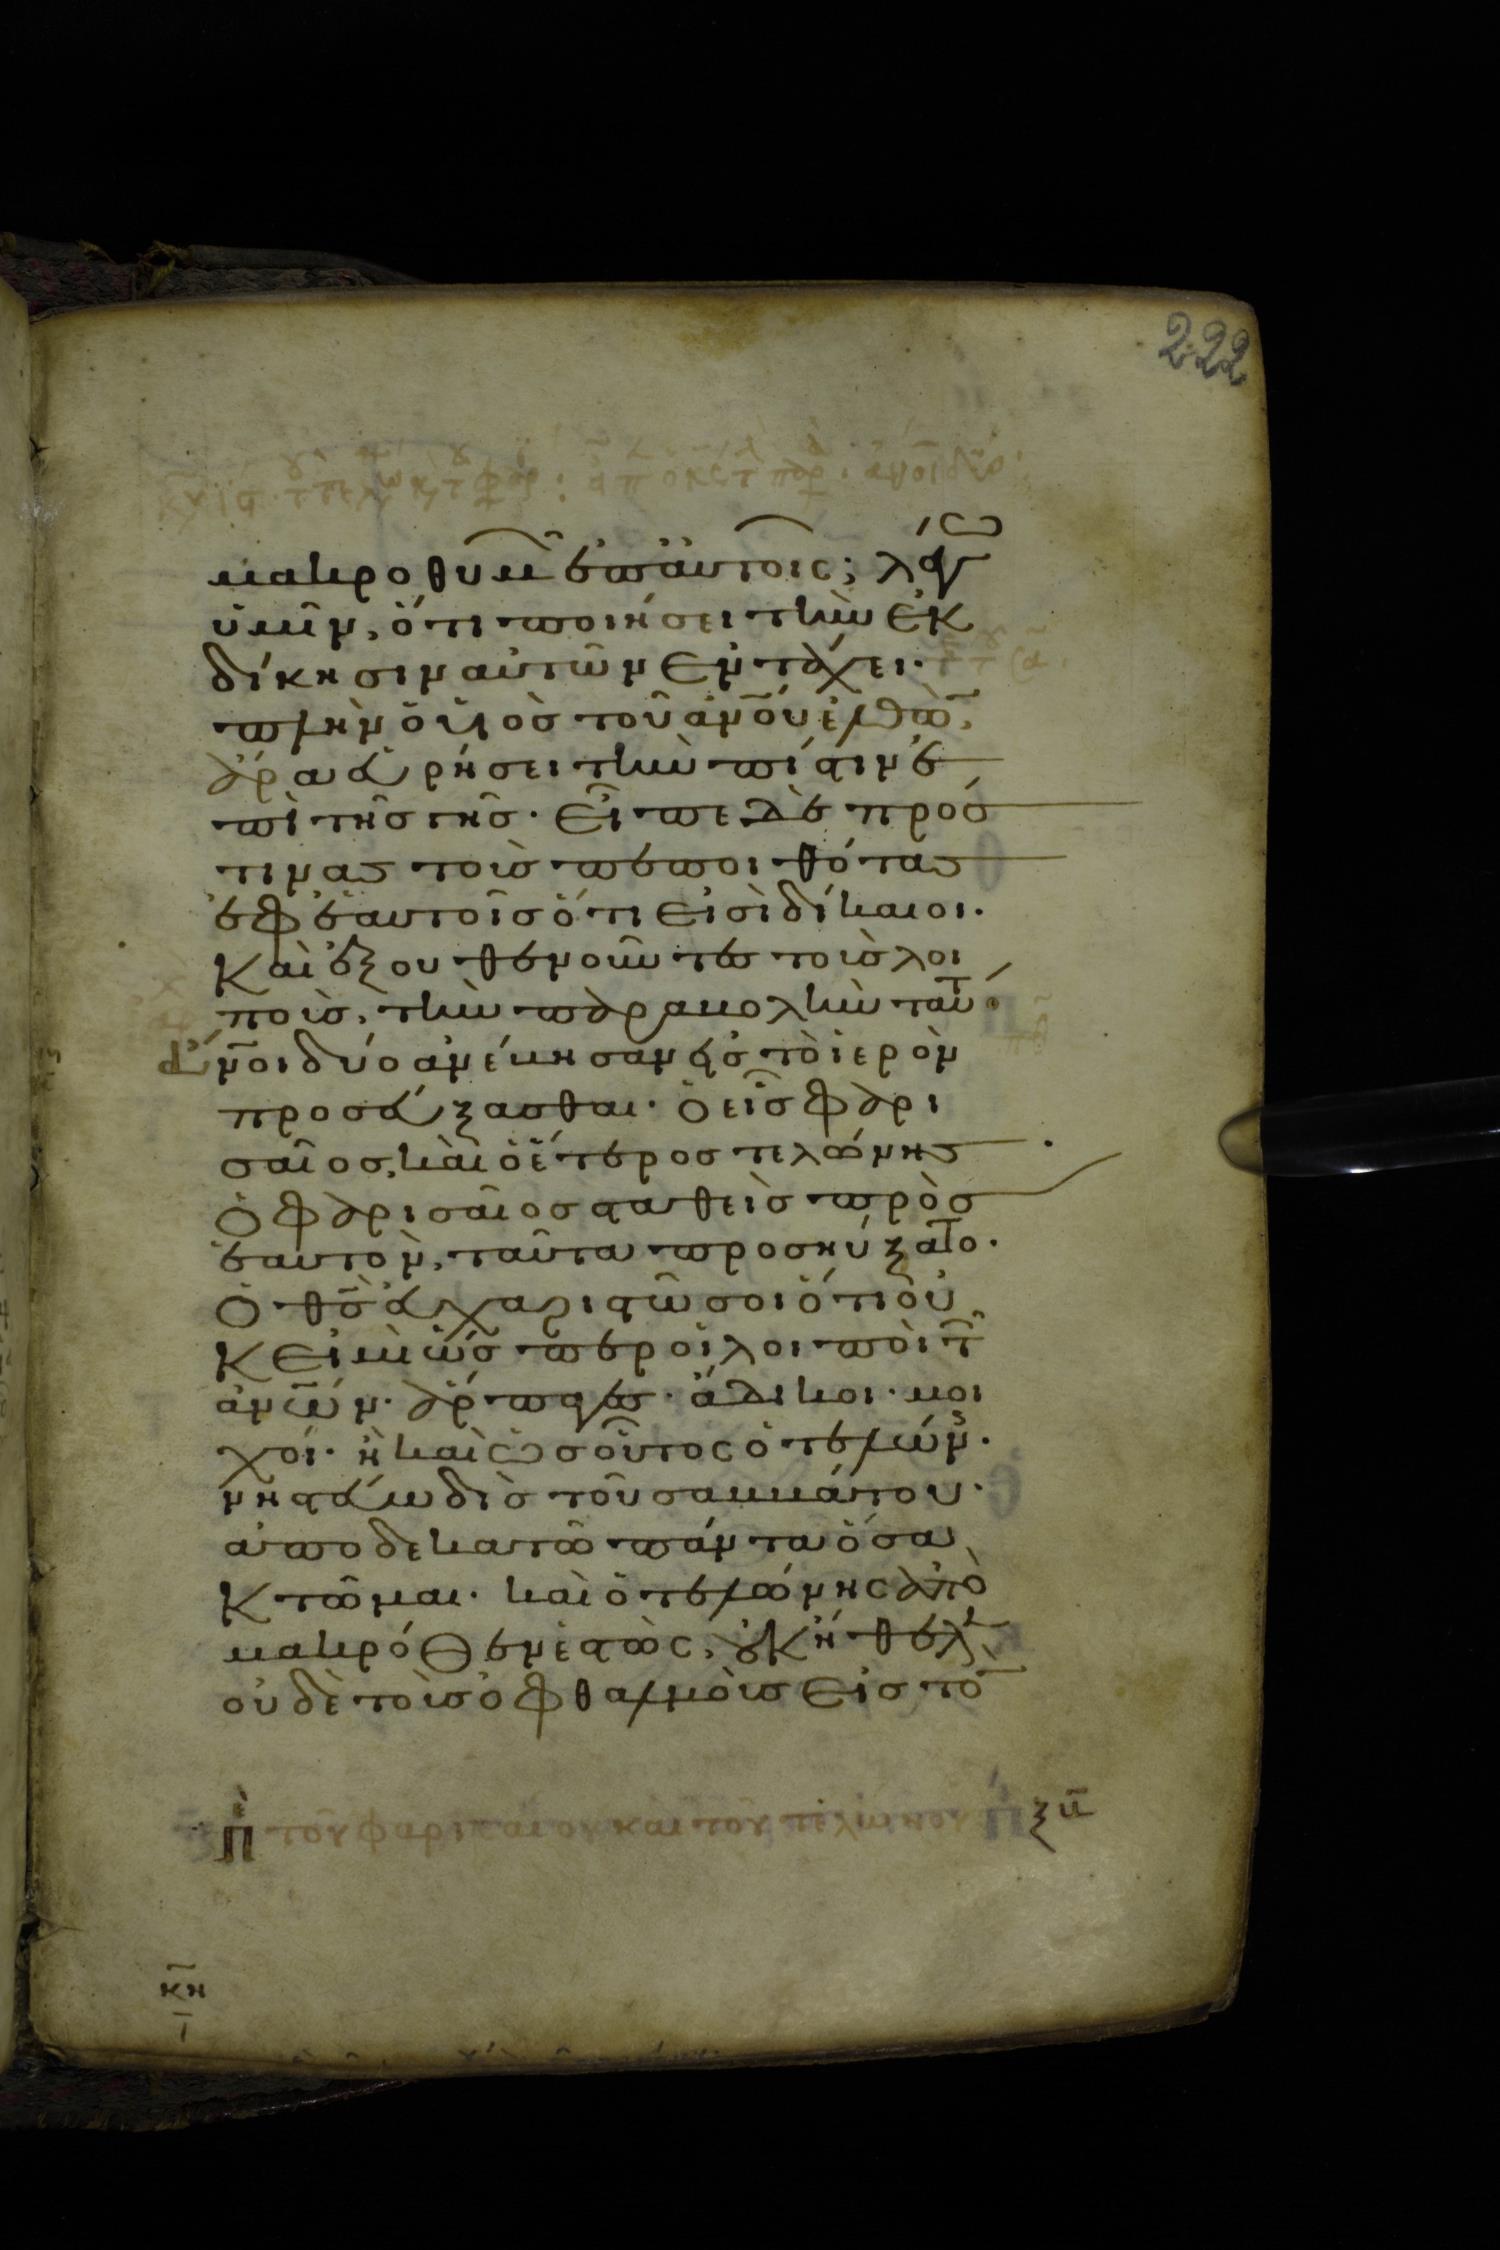 222
μακροθυμῶν ἐπ' αὐτοῖς; λέγω
ὑμῖν, ὅτι ποιήσει τὴν ἐκ
δίκησιν αὐτῶν ἐν τάχει.
πλὴν ὁ υἱὸσ τοῦ ἀν̅ο̅υ̅ ἐλθὼν,
ἆρα εὑρήσει τὴν πίστιν ἐ
πὶ τῆσ γῆσ. Εἶπε δὲ πρόσ
τινας τοὺσ πεποιθότας
ἐφ' ἑαυτοῖσ ὅτι εἰσὶ δίκαιοι.
Καὶ ἐξουθενοῦντεσ τοὺσ λοι
ποὺσ, τὴν παραβολὴν ταύτ
ἄν̅ο̅ι δύο ἀνέβησαν εἰσ τὸ ἱερὸν
προσεύξασθαι. ὁ εἷσ φαρι
σαῖοσ, καὶ ὁ ἕτεροσ τελώνης
Ὁ φαρισαῖοσ σταθεὶσ πρὸσ
ἑαυτὸν, ταῦτα προσηύξατο.
Ὁ θ̅σ̅ εὐχαριστῶ σοι ὅτι οὐ
Κ εἰμὶ ὥσπερ οἱ λοιποὶ τῶν
ἀν̅ω̅ν. ἅρπαγεσ. ἄδικοι. μοι
χοί. ἢ καὶ ὡσ οὗτος ὁ τελώνησ.
νηστεύω δὶσ τοῦ σαββάτου.
ἀποδεκατῶ πάντα ὅσα
Κτῶμαι. καὶ ὁ τελώνης ἀπὸ
μακρόθεν ἑστὼς, οὐκ ἤθελεν
οὐδὲ τοὺσ ὀφθαλμοὺσ εἰσ τὸν
τοῦ φαρισαίου καὶ τοῦ τελώνου
κη